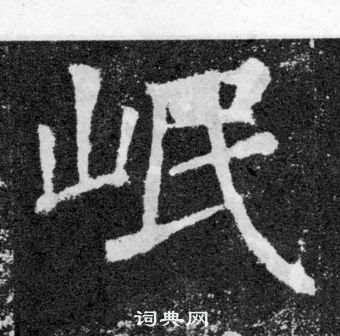 岷
词典网